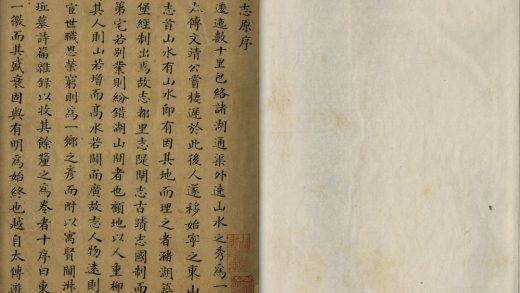 志原序
逶迤數十里包絡諸湖通渠外遶山水之秀爲一
太傅文靖公嘗棲遲於此後人遂移始寧之東山
志首山水有山水即有因其地而理之者豬湖築
堡經制出焉故志都里志隄閘志古蹟志國制而
第宅若別業則紛錯湖山間者也顧地以人重柳
其人則山若增而高水若闢而廣故志人物遠則
宣世職恩榮窮則爲一鄉之彥而附以寓賢閨淋
丘墓詩篇雜錄以收其餘釐之爲卷者十序曰東
一徽而其盛衰固與有明爲始終也越自太傅遊